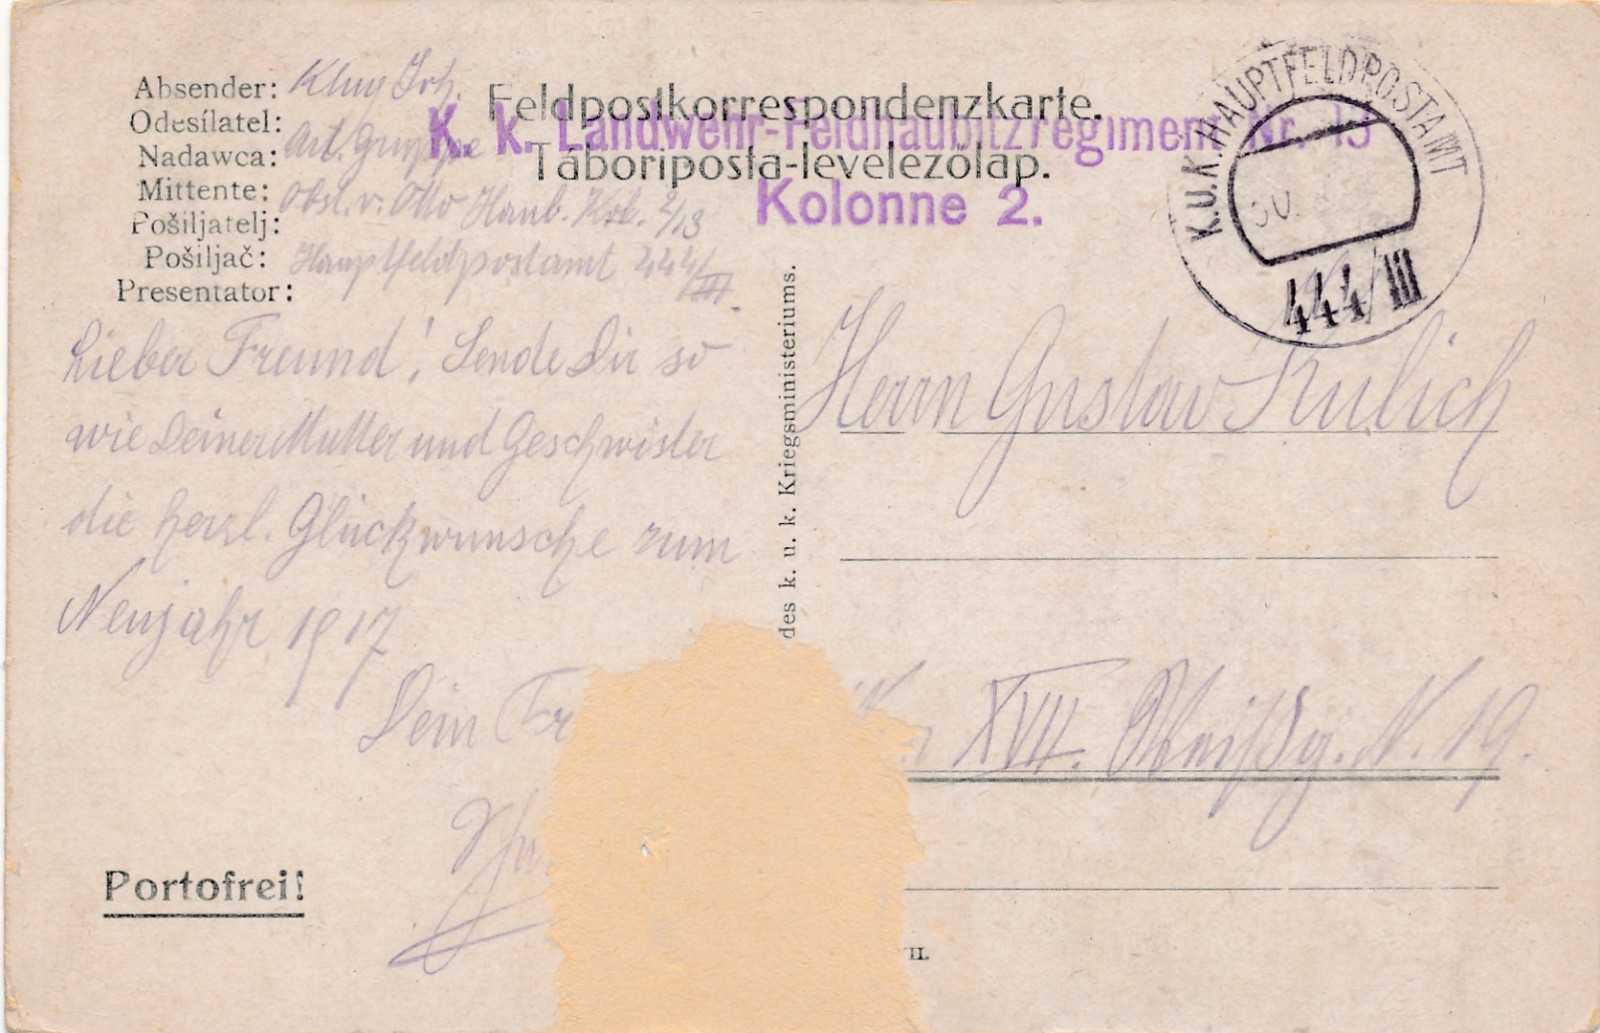 Feldpostkorrespondenzkarte.
K. k. Landwehr-Feldhaubitzregiment Nr. 13
Tábori posta-levelezőlap.
Kolonne 2.
K.u.K. HAUPTFELDPOSTAMT
444/III
Absender: Klug Joh.
Odesílatel: Art. Gruppe
Nadawca:
Mittente: Obstl. v. Otto Haub. Kol. 2/13
Pošiljatelj:
Pošiljač: Hauptfeldpostamt 444/III.
Presentator:
Lieber Freund! Sende Dir so
wie Deiner Mutter und Geschwister
die herzl. Glückwünsche zum
Neujahr 1917
Dein Fr
Portofrei!
des k. u. k. Kriegsministeriums.
Herrn Gustav Kulich
XVII. N. 19.
VII.